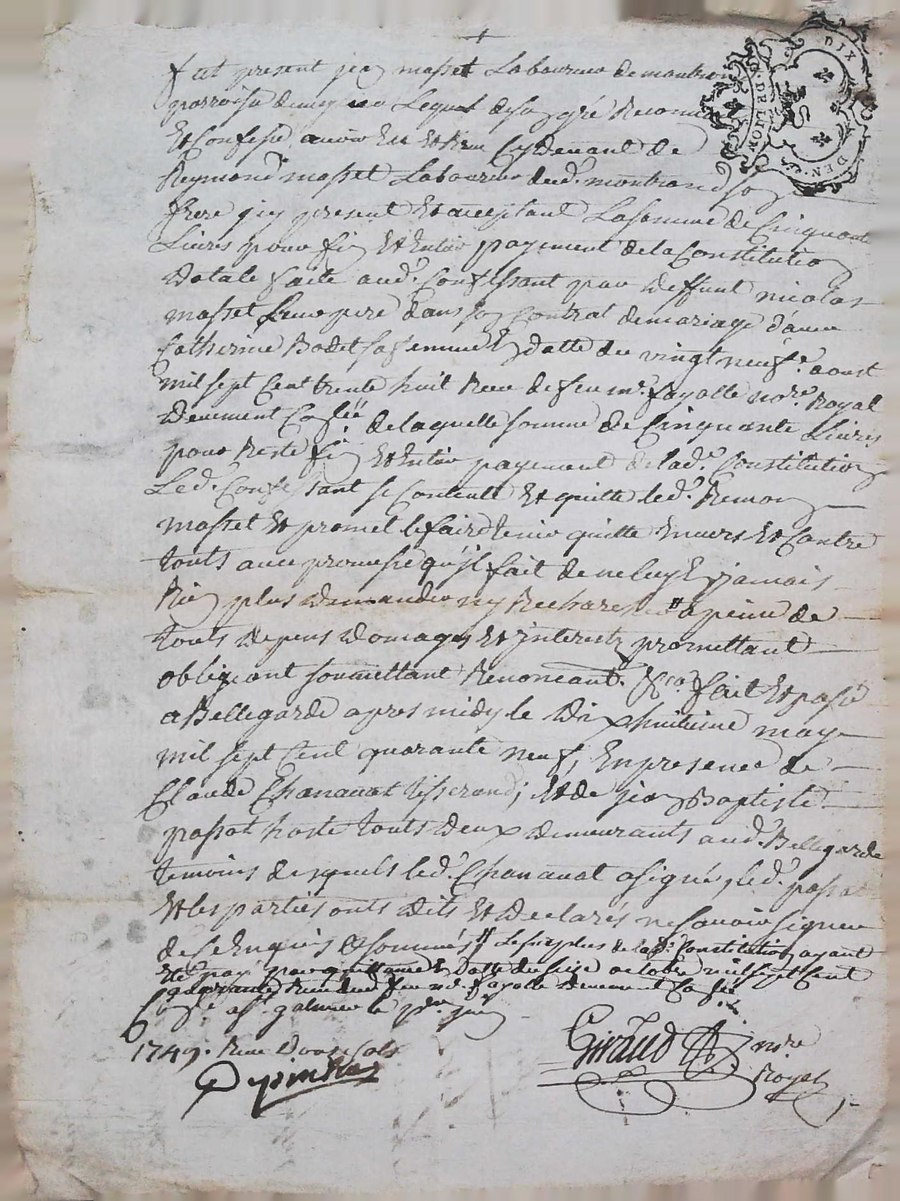 fut present jean masset Laboureur demontron
parroisse de Lequel de son gré Reconnu
Et Confessé avoir Eu Et Receu cy Devant de
Reymond masset Laboureur dud. montrond son
frere icy present Et acceptant La somme de Cinquante
Livres pour fin Et Entier payement de la Constitution
Dotale faite aud. Confessant par Deffunt nicolas
masset Leur pere dans son Contrat de mariage d'avec
Catherine Bodet sa femme En datte du vingt neuf.e aoust
mil sept Cent trente huit Receu de feu mr. fayolle nore. Royal
Deuement Coll.é de laquelle somme de Cinquante Livres
pour Reste fin Et Entier payement de lad. Constitution
Led. Confessant se Contente Et quitte led. Remon
masset Et promet le faire tenir quitte Envers Et Contre
touts avec promesse qu'il fait de ne luy En jamais
Rien plus Demander ny Rechercher # a peine de
touts depens Domages Et interests promettant
obligeant soumettant Renoncant. &ca fait Et passé
a Bellegarde apres midy le Dix huitieme may
mil sept Cent quarante neuf, En presence de
Claude Chanavat tisserand, Et de jean Baptiste
passot hoste touts Deux Demeurants aud. Bellegarde
temoins desquels led. Chanavat a signé, led. passot
Et les parties onts Dits Et Declarés ne scavoir signer
de ce Enquis Et sommés # Le surplus de lad. Constitution ayant
été payé par quittance En Datte du seize octobre mil sept Cent
quarante Receu dud. feu mr. fayolle Deuement Coll.é
Coll.é a St. galmier le juin
1749. Receu Douze sols
Giraud nore
Royal